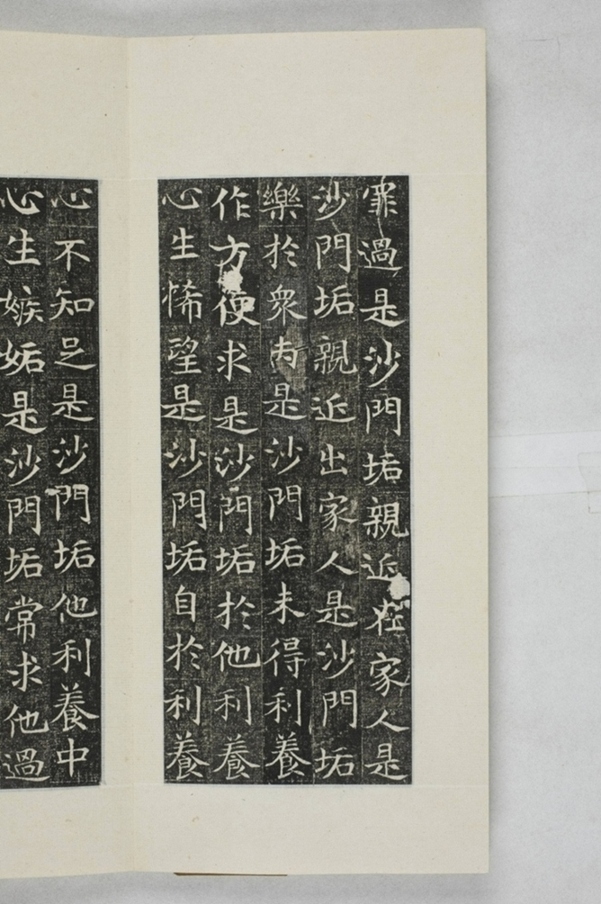 罪過是沙門垢親近在家人是
沙門垢親近出家人是沙門垢
樂於衆肉是沙門垢未得利養
作方便求是沙門垢於他利養
心生悕望是沙門垢自於利養
心不知足是沙門垢他利養中
心生嫉妬是沙門垢常求他過